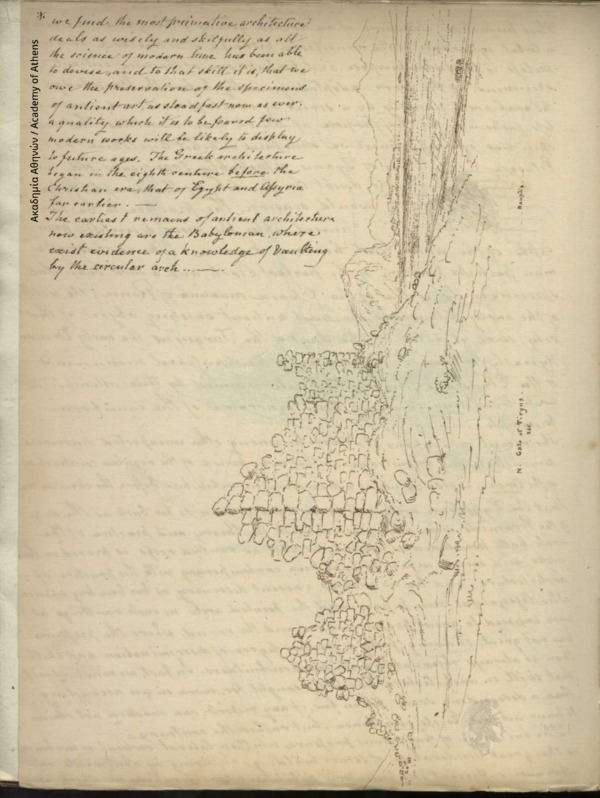 we find the most primative architecture
deals as wisely and skilfully as all
the science of modern time has been able
to devise, and to that skill it is, that we
owe the preservation of the specimens
of antient art as steadfast now as ever.
a quality which it is to be feared few
modern works will be likely to display
to future ages. The Greek architecture
began in the eighth centure before the
Christian era, that of Egypt and Assyria
far earlier. —
The earliest remains of antient architecture
now existing are the Babylonian, where
exist evidence of a knowledge of Vaulting
by the circular arch ... —.
Ακαδημία Αθηνών / Academy of Athens
Nauplia.
N. Gate of Tiryns.